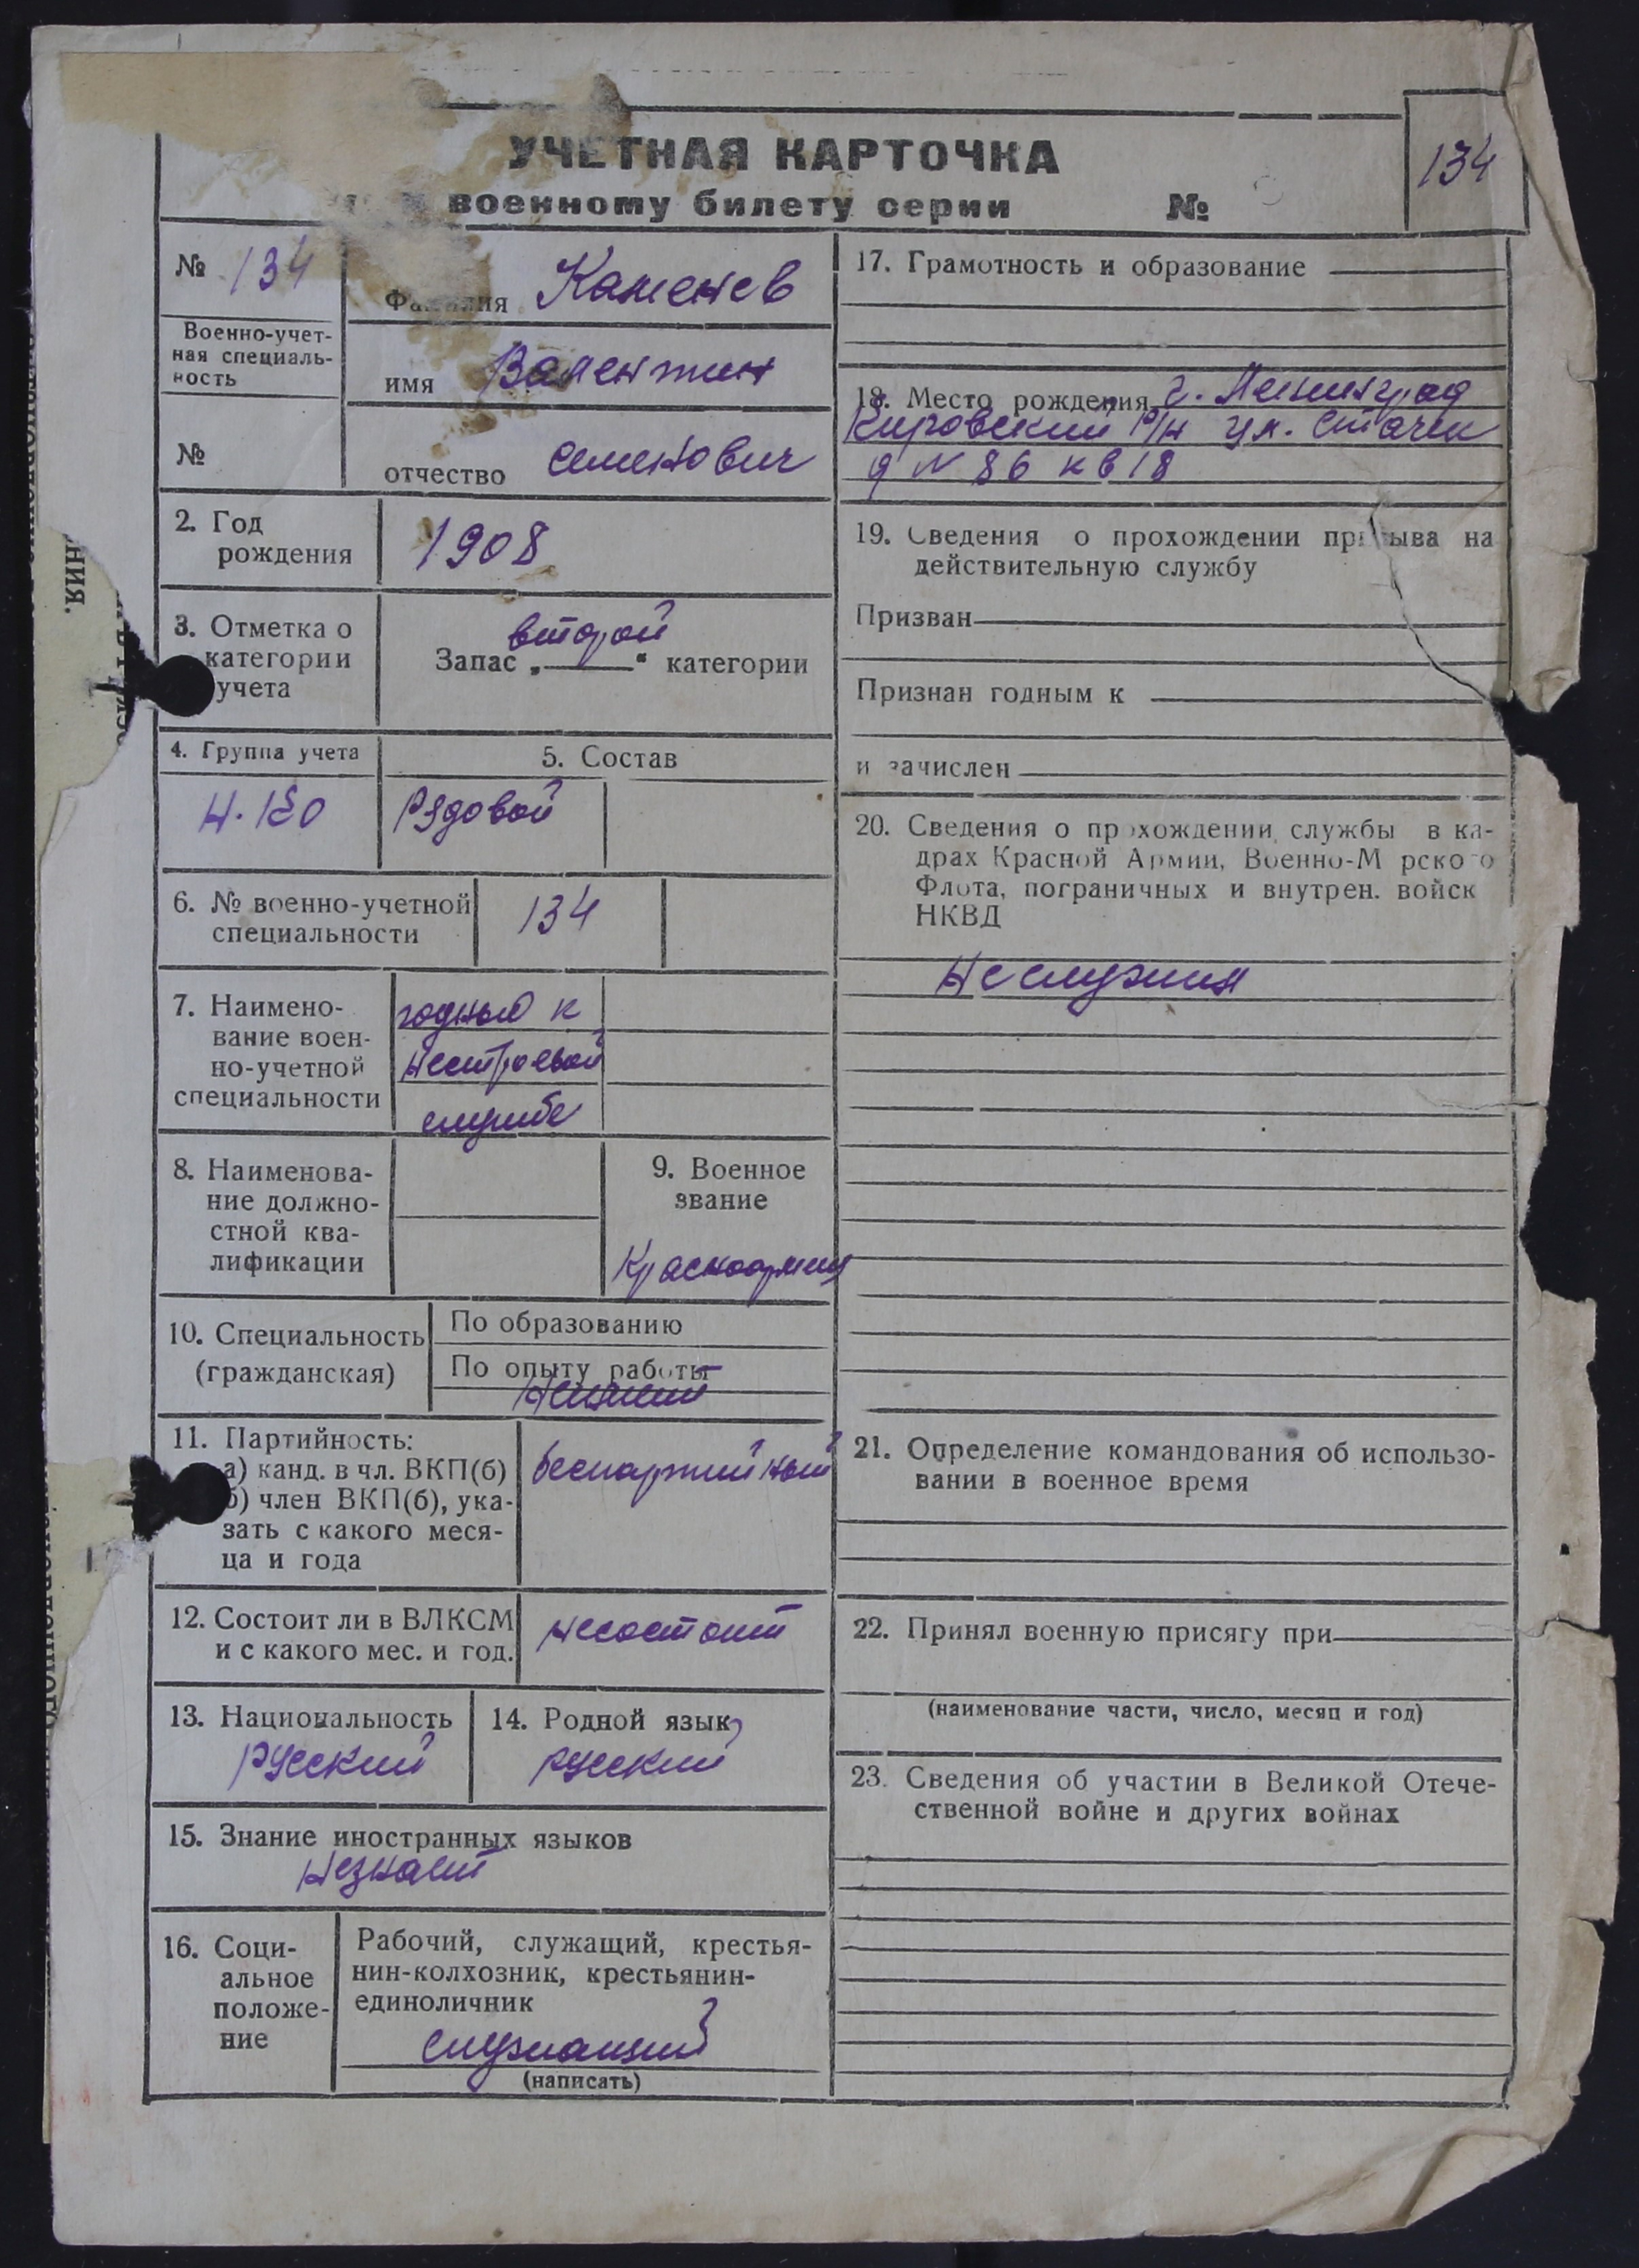 УЧЕТНАЯ КАРТОЧКА
военному билету серии №
134
№ 134
Военно-учет-
ная специаль-
ность
№
Фамилия Каменев
имя Валентин
отчество Семенович
2. Год
рождения
1908
3. Отметка о
категории
учета
второй
Запас „ “ категории
4. Группа учета
5. Состав
Рядовой
6. № военно-учетной
специальности
134
7. Наимено-
вание воен-
но-учетной
специальности
годный к
нестроевой
службе
8. Наименова-
ние должно-
стной ква-
лификации
9. Военное
звание
Красноармеец
10. Специальность
(гражданская)
По образованию
По опыту работы
11. Партийность:
а) канд. в чл. ВКП(б)
б) член ВКП(б), ука-
зать с какого меся-
ца и года
беспартийный
12. Состоит ли в ВЛКСМ
и с какого мес. и год.
несостоит
13. Национальность
русский
14. Родной язык
русский
15. Знание иностранных языков
незнает
16. Соци-
альное
положе-
ние
Рабочий, служащий, крестья-
нин-колхозник, крестьянин-
единоличник
служащий
(написать)
17. Грамотность и образование
18. Место рождения г. Ленинград
Кировский р/н ул. Стачек
д N 86 кв 18
19. Сведения о прохождении призыва на
действительную службу
Призван
Признан годным к
и зачислен
20. Сведения о прохождении службы в ка-
драх Красной Армии, Военно-Морского
Флота, пограничных и внутрен. войск
НКВД
Неслужил
21. Определение командования об использо-
вании в военное время
22. Принял военную присягу при
(наименование части, число, месяц и год)
23. Сведения об участии в Великой Отече-
ственной войне и других войнах